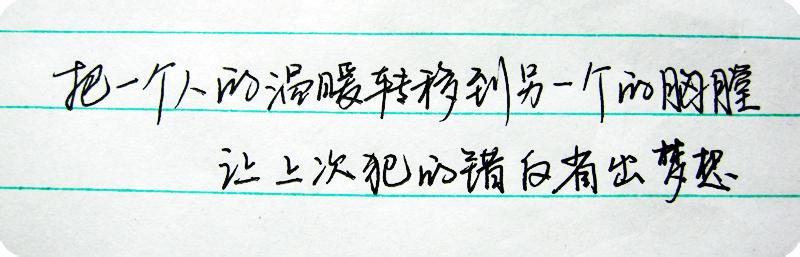 把一个人的温暖转移到另一个的胸膛
让上次犯的错反省出梦想